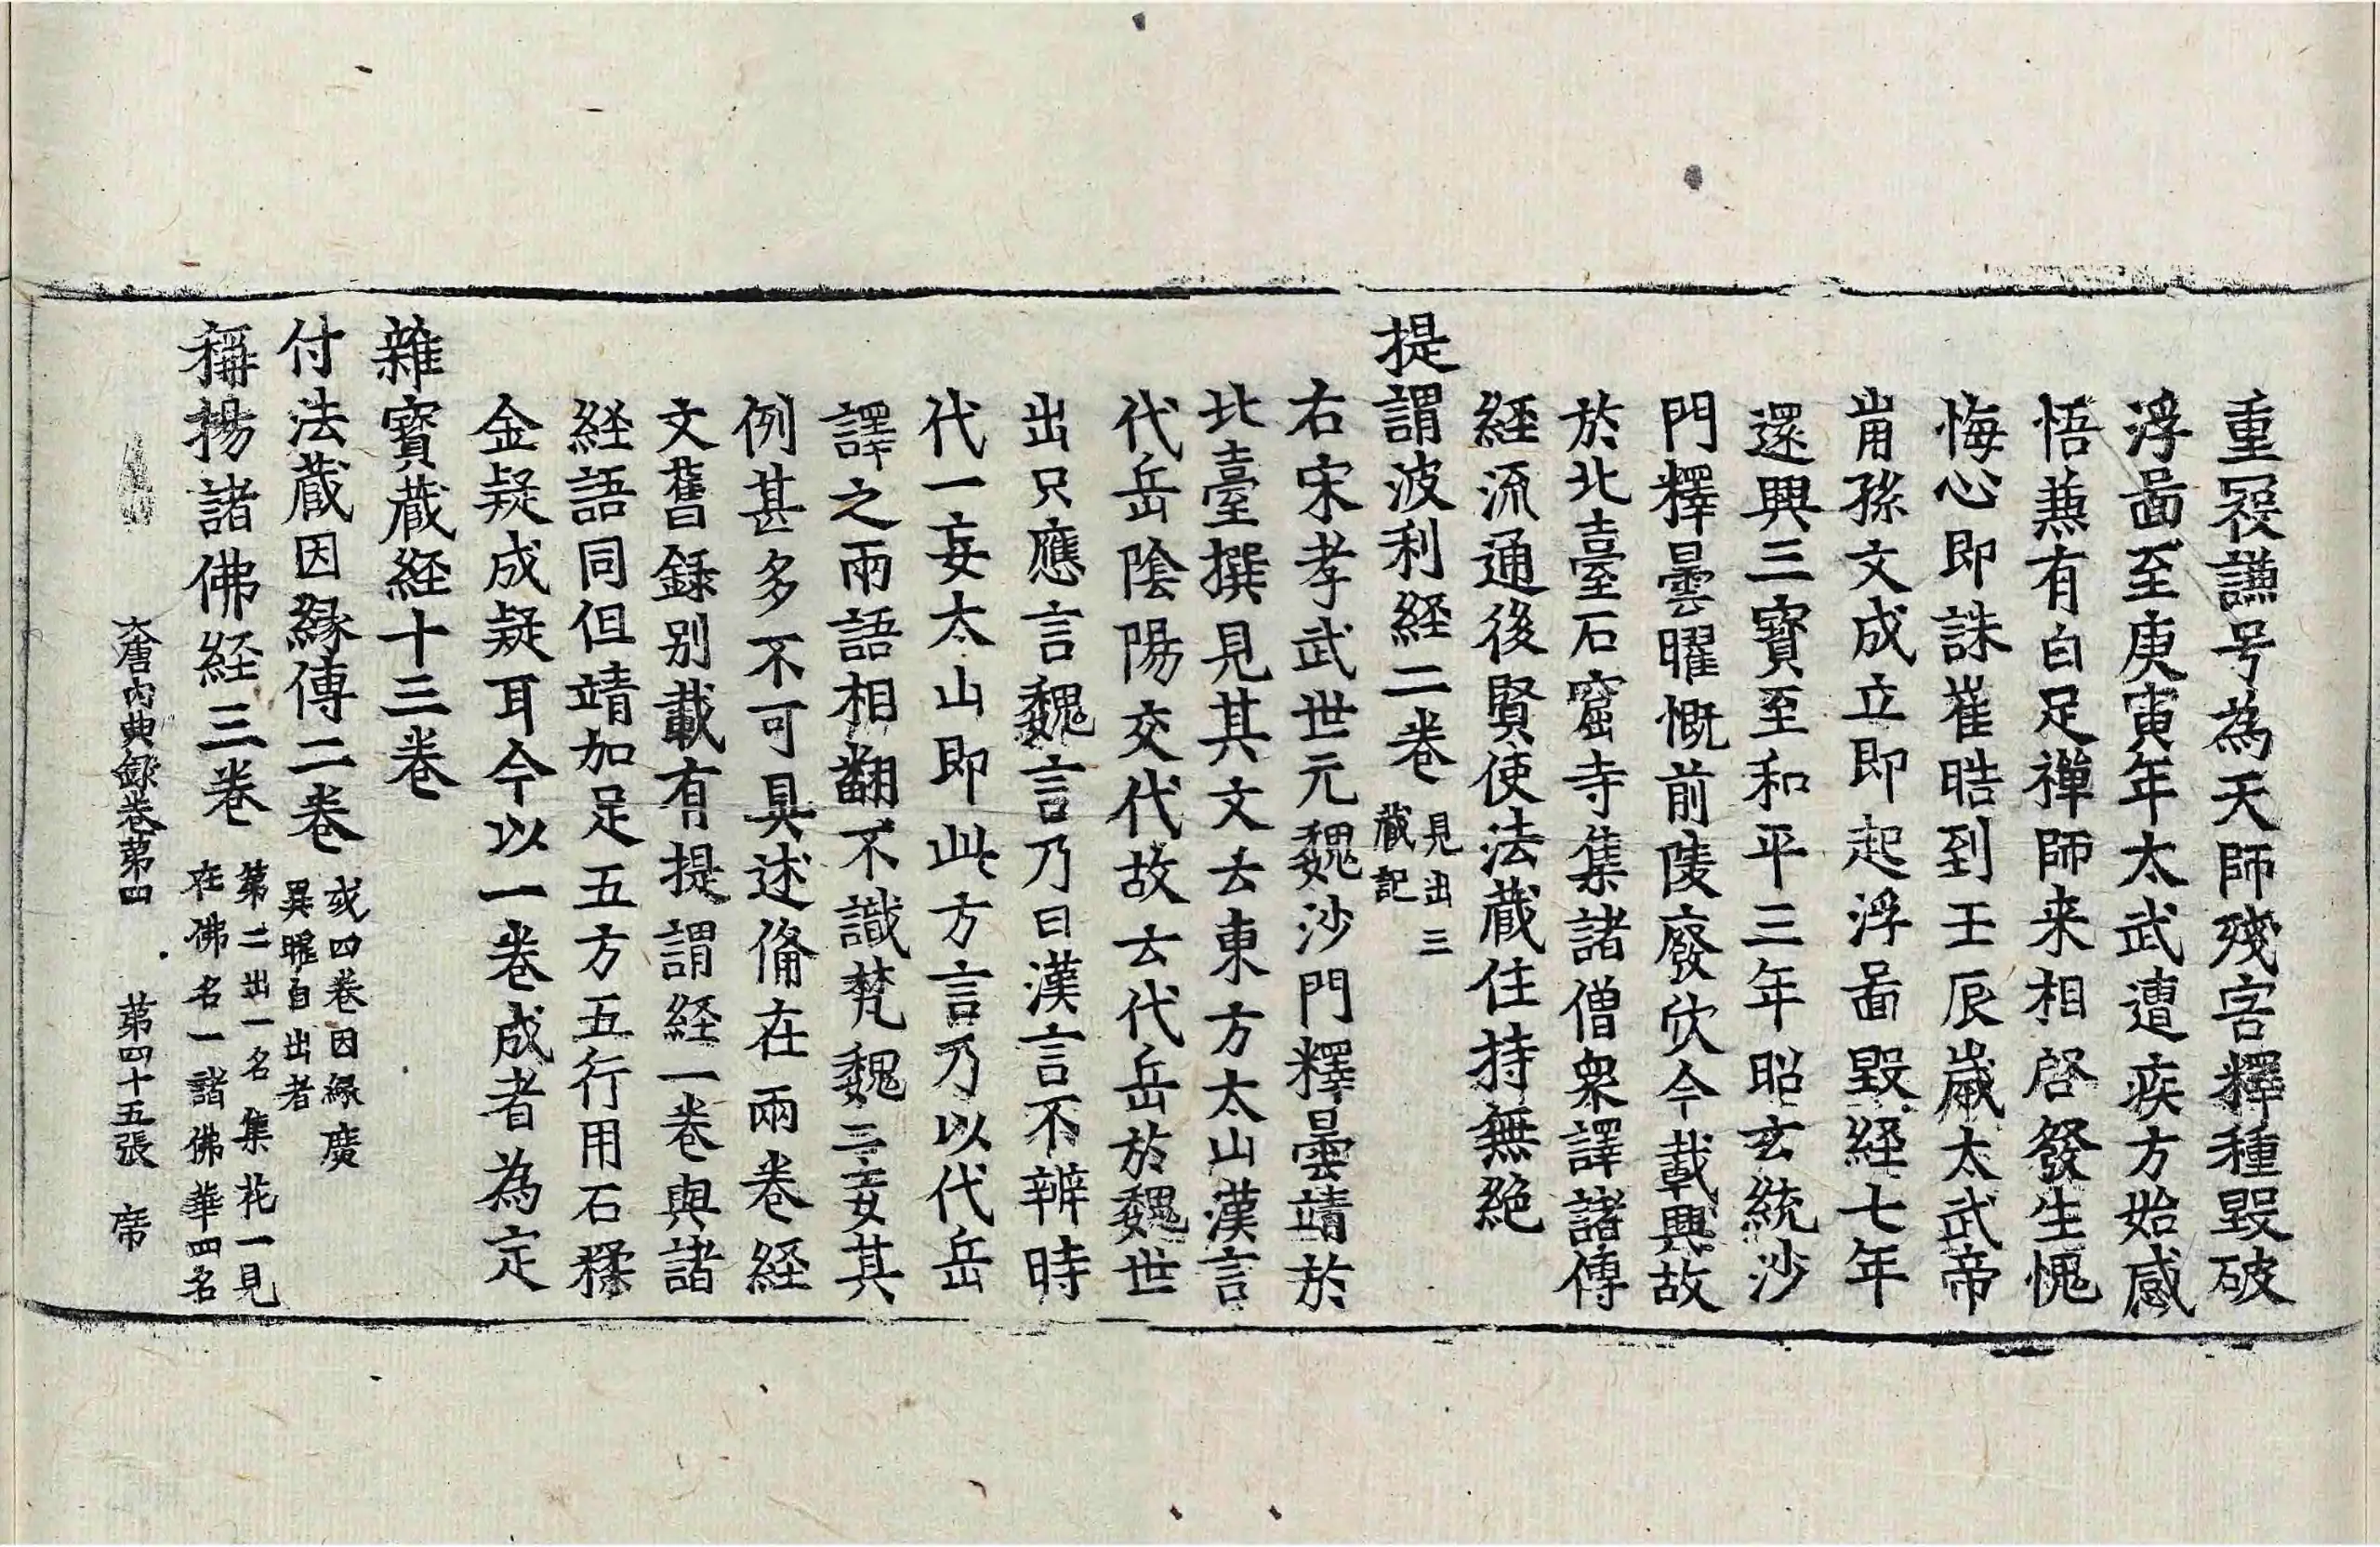 重冦謙号為天師殘害釋種毀破
浮啚至庚寅年太武遭疾方始感
悟兼有白足禪師来相啓發生愧
悔心即誅崔皓到壬辰歲太武帝
崩孫文成立即起浮啚毀経七年
還興三寶至和平三年昭玄統沙
門釋曇曜慨前陵廢欣今載興故
於北臺石窟寺集諸僧衆譯諸傳
経流通後賢使法蔵住持無絶
提謂波利経二卷 見出三
蔵記
右宋孝武世元魏沙門釋曇靖於
北臺撰見其文云東方太山漢言
代岳陰陽交代故云代岳於魏世
出只應言魏言乃曰漢言不辨時
代一妄太山即此方言乃以代岳
譯之兩語相翻不識梵魏二妄其
例甚多不可具述備在兩卷経
文舊録別載有提謂経一卷與諸
経語同但靖加足五方五行用石糅
金疑成疑耳今以一卷成者為定
雜寶蔵経十三卷
付法蔵因縁傳二卷 或四卷因縁廣
異曜自出者
稱揚諸佛経三卷 第二出一名集花一見
在佛名一諸佛華四名
大唐内典録卷第四 第四十五張 帝